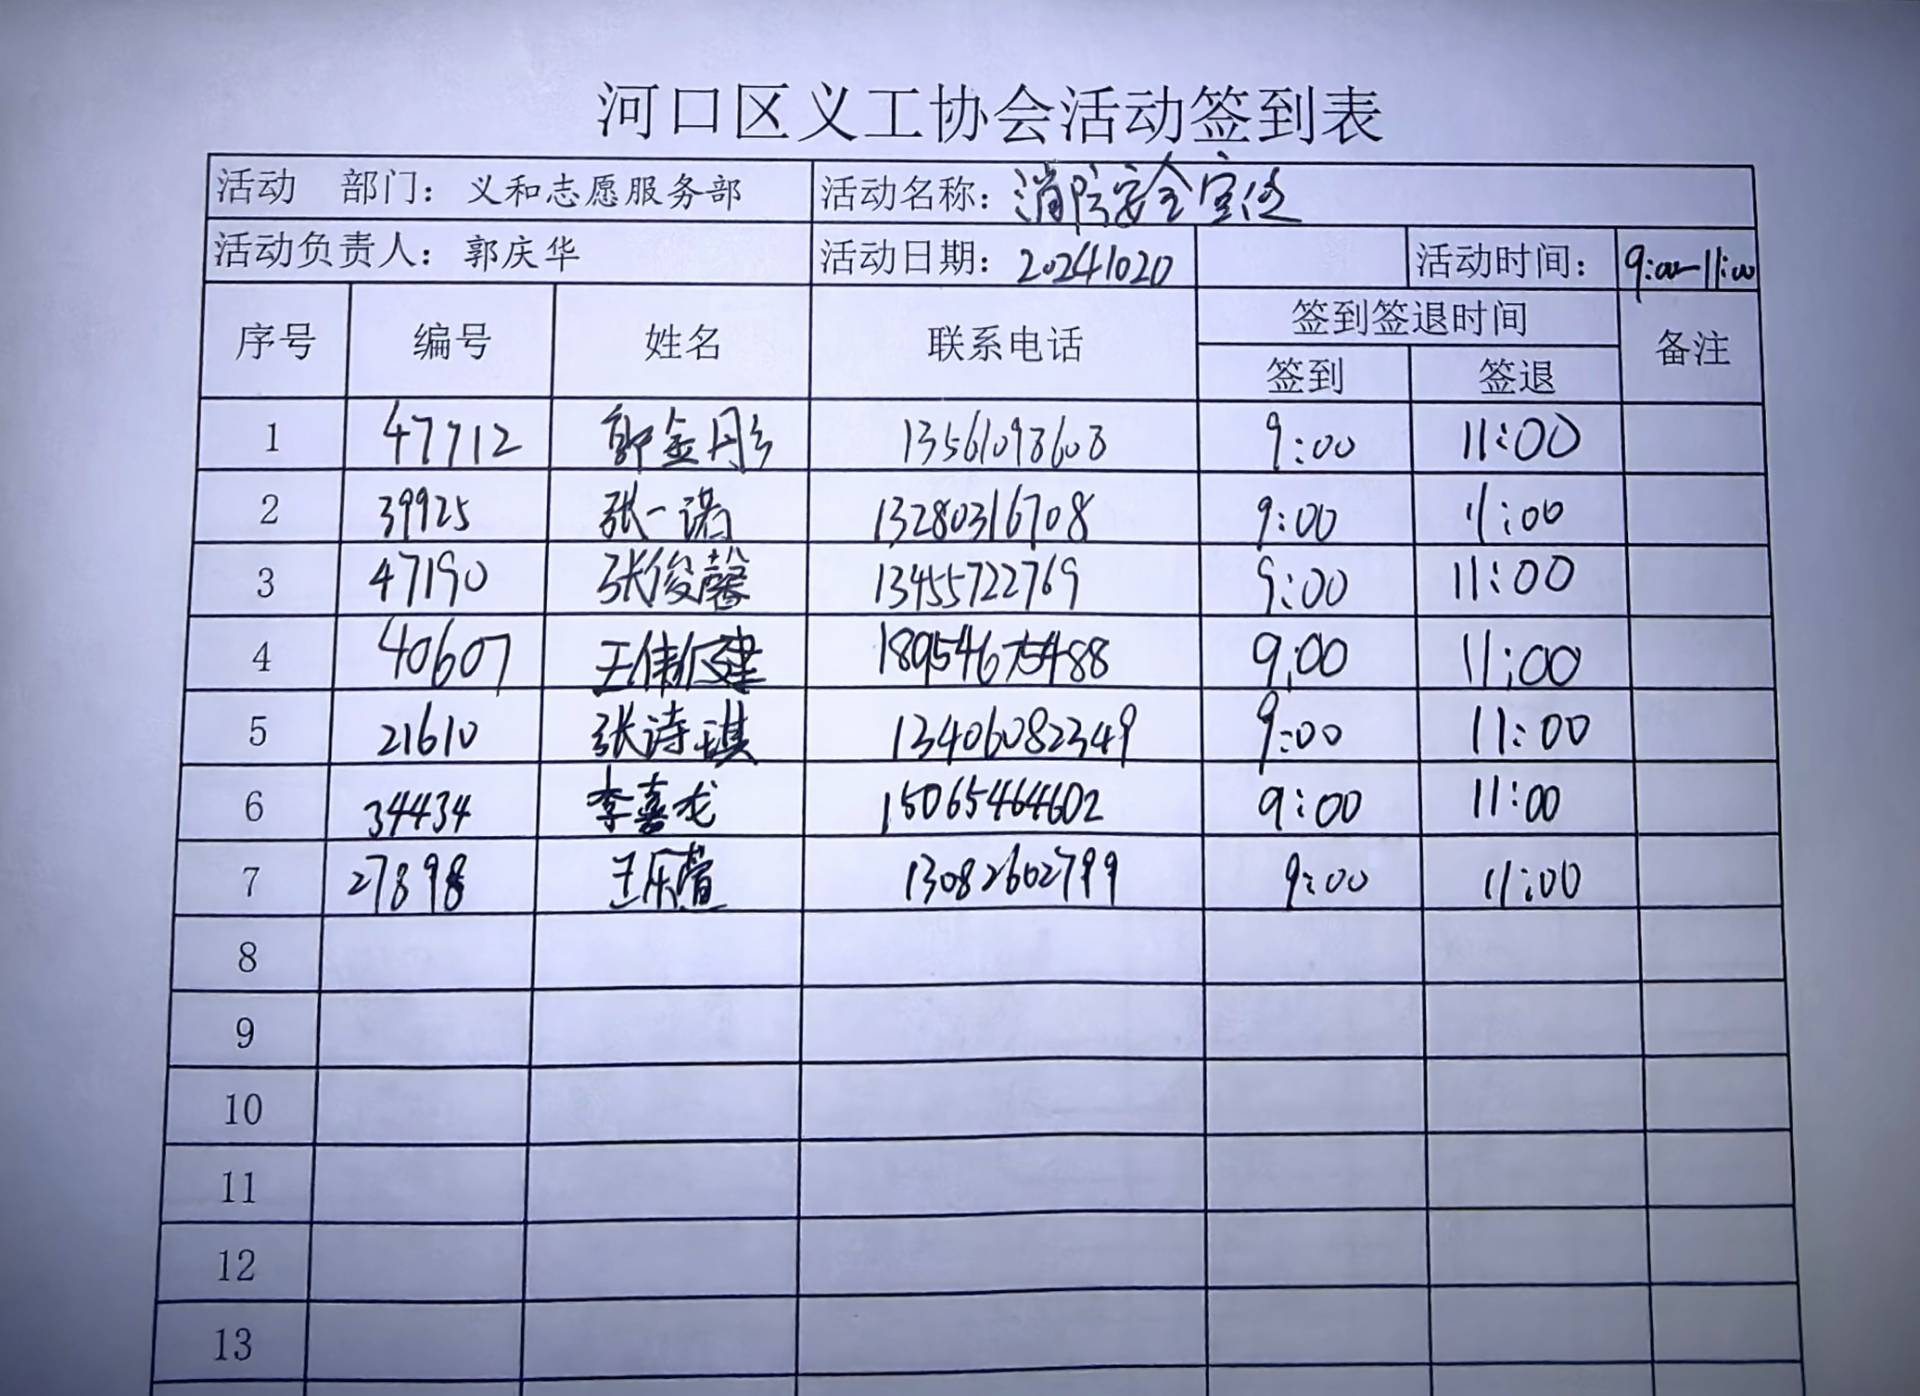 河口区义工协会活动签到表
活动 部门：义和志愿服务部 活动名称：消防安全宣传
活动负责人：郭庆华 活动日期：20241020 活动时间：9:00-11:00
序号 编号 姓名 联系电话 签到签退时间 备注
签到 签退
1 47712 郭金彤 13561098608 9:00 11:00
2 39925 张一诺 13280316708 9:00 11:00
3 47190 张俊馨 13455722769 9:00 11:00
4 40607 王伟建 18954675488 9:00 11:00
5 21610 张诗琪 13406082349 9:00 11:00
6 34434 李嘉龙 15065464602 9:00 11:00
7 27898 王乐萱 13082602799 9:00 11:00
8
9
10
11
12
13